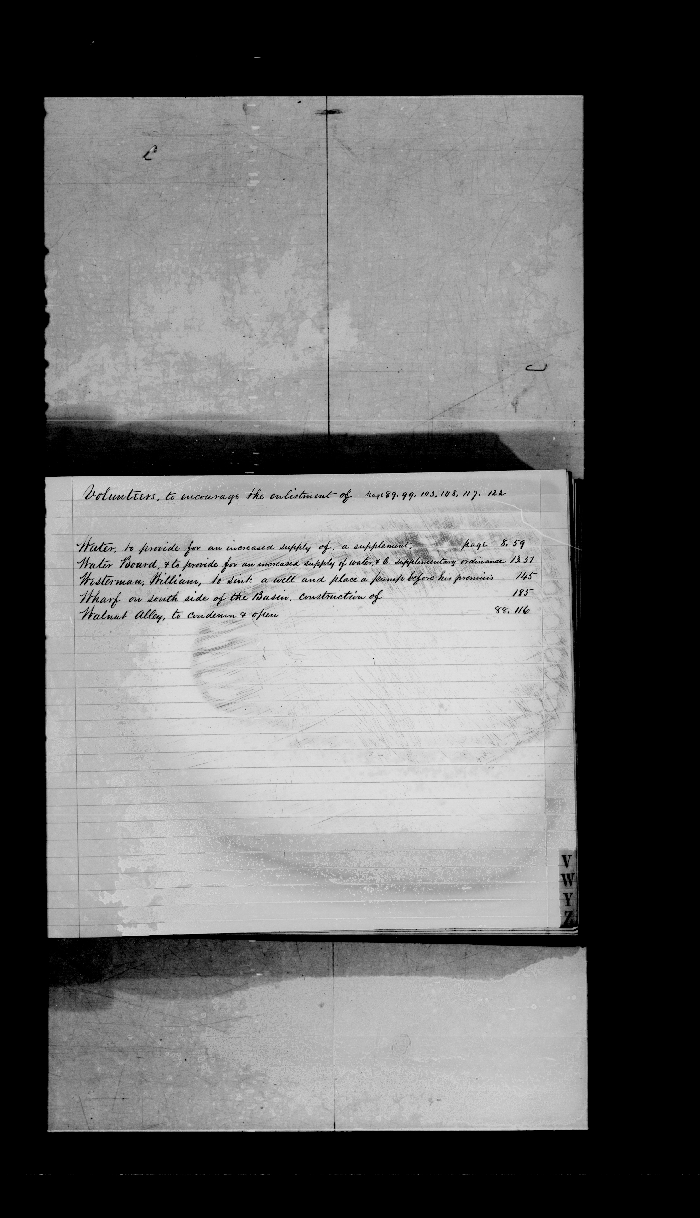 Volunteers, to encourage the enlistment of page 89. 99. 103. 108. 117. 122
Water, to provide for an increased supply of, a supplement. page 8. 59
Water Board, & to provide for an increased supply of water, & C. supplementary ordinance 13. 51
Westerman, William, to sink a well and place a pump before his premises 145
Wharf on south side of the Basin, construction of 185
Walnut Alley, to condemn & open 88. 116
V
W
Y
Z